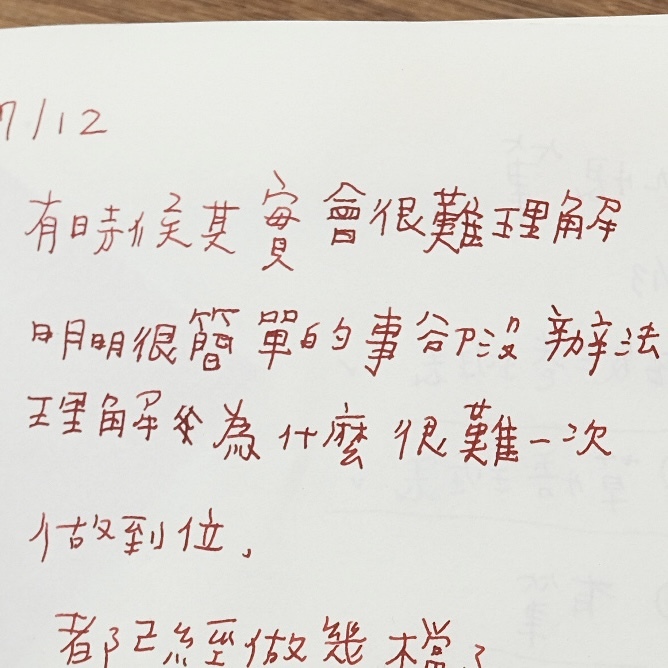 7/12
有時候其實會很難理解
明明很簡單的事卻沒辦法
理解 為什麼很難一次
做到位,
都已經做幾檔了